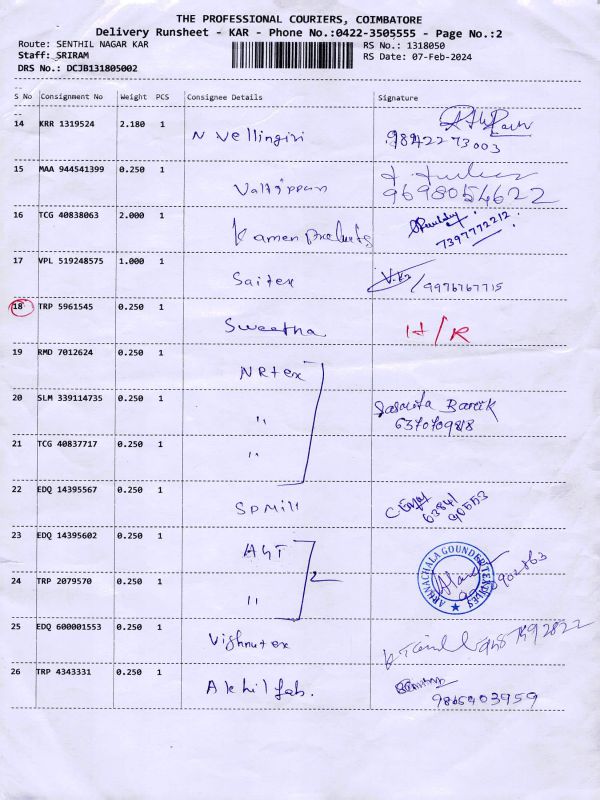 THE PROFESSIONAL COURIERS, COIMBATORE
Delivery Runsheet - KAR - Phone No.:0422-3505555 - Page No.:2
Route: SENTHIL NAGAR KAR RS No.: 1318050
Staff: SRIRAM RS Date: 07-Feb-2024
DRS No.: DCJB131805002
S No Consignment No Weight PCS Consignee Details Signature
14 KRR 1319524 2.180 1 N Vellingiri
9842273003
15 MAA 944541399 0.250 1
9698054622
16 TCG 40838063 2.000 1 Kamen Products
7397772212
17 VPL 519248575 1.000 1 Saitex 9976767715
18 TRP 5961545 0.250 1 Sweetha H/R
19 RMD 7012624 0.250 1 NRtex
20 SLM 339114735 0.250 1 "
21 TCG 40837717 0.250 1 "
22 EDQ 14395567 0.250 1 SP Mill
63841
90553
23 EDQ 14395602 0.250 1 AGT
ARUNACHALA GOUNDER TEXTILES
24 TRP 2079570 0.250 1 " 2
25 EDQ 600001553 0.250 1 Vishnutex
26 TRP 4343331 0.250 1 Akhil fab.